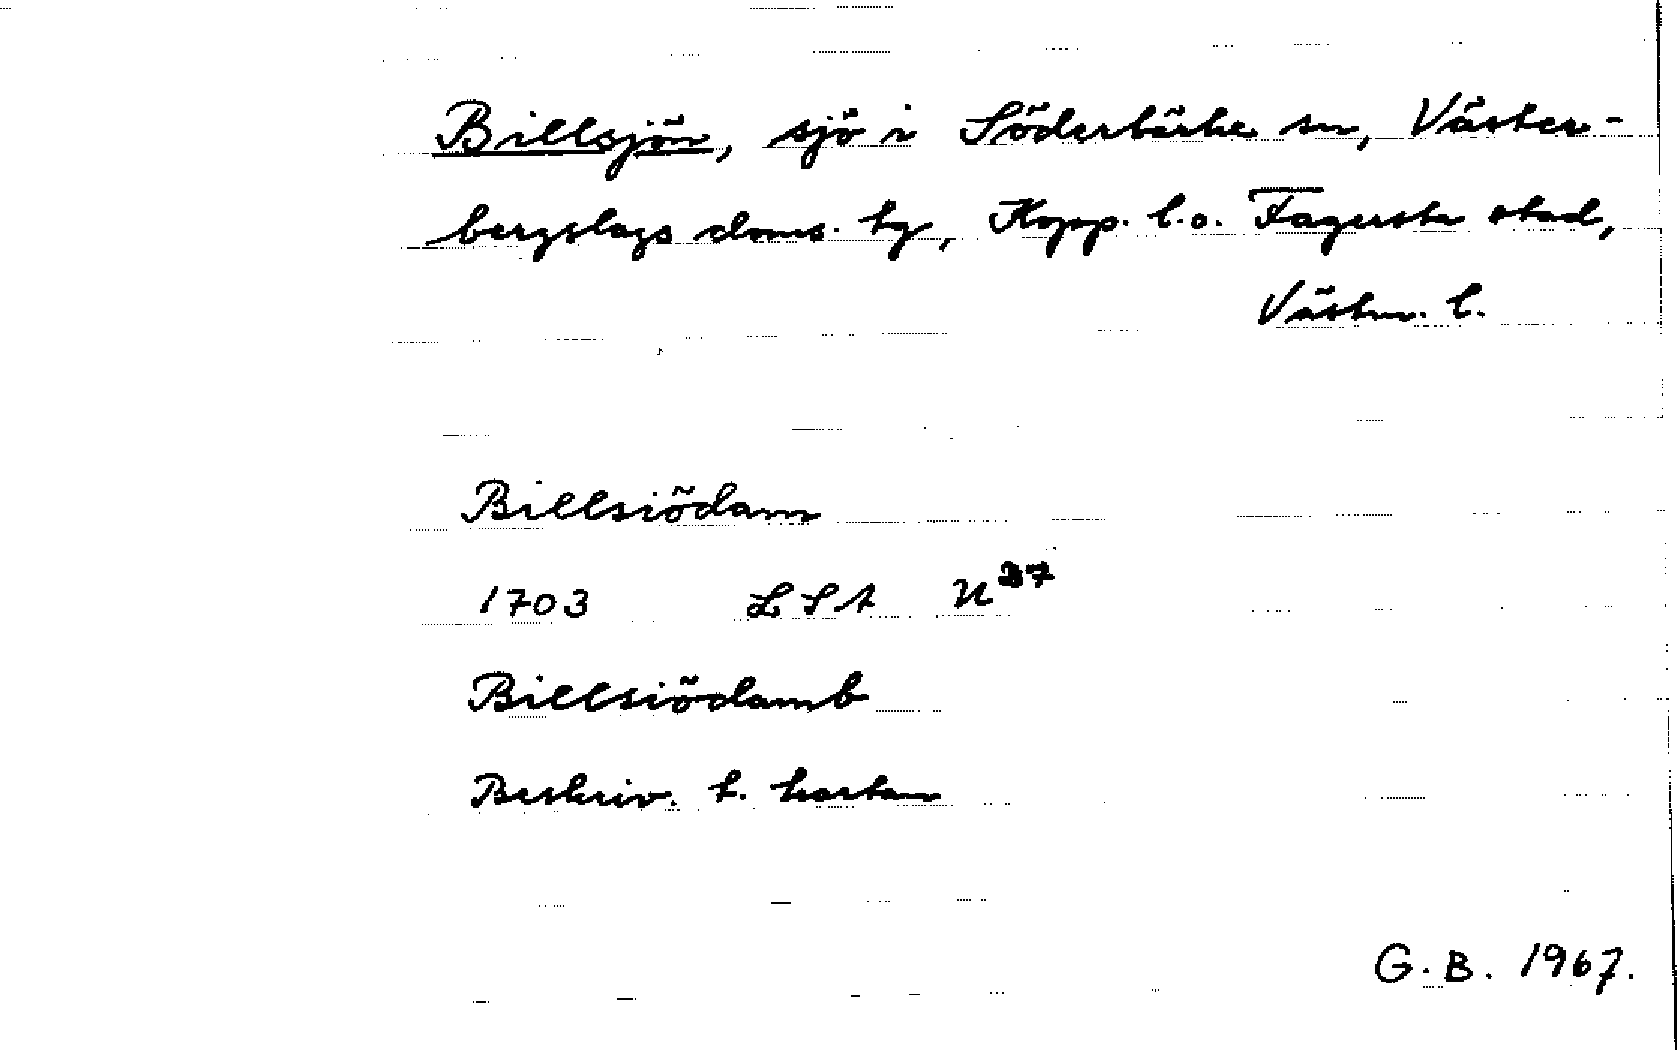 Billsjön, sjö i Söderbärke sn, Väster-
bergslags doms. tg, Kopp. l. o. Fagersta stad,
Västm. l.
Billsiödam
1703 LSA U 27
Billsiödamb
Beskriv. t. kartan
G. B. 1967.